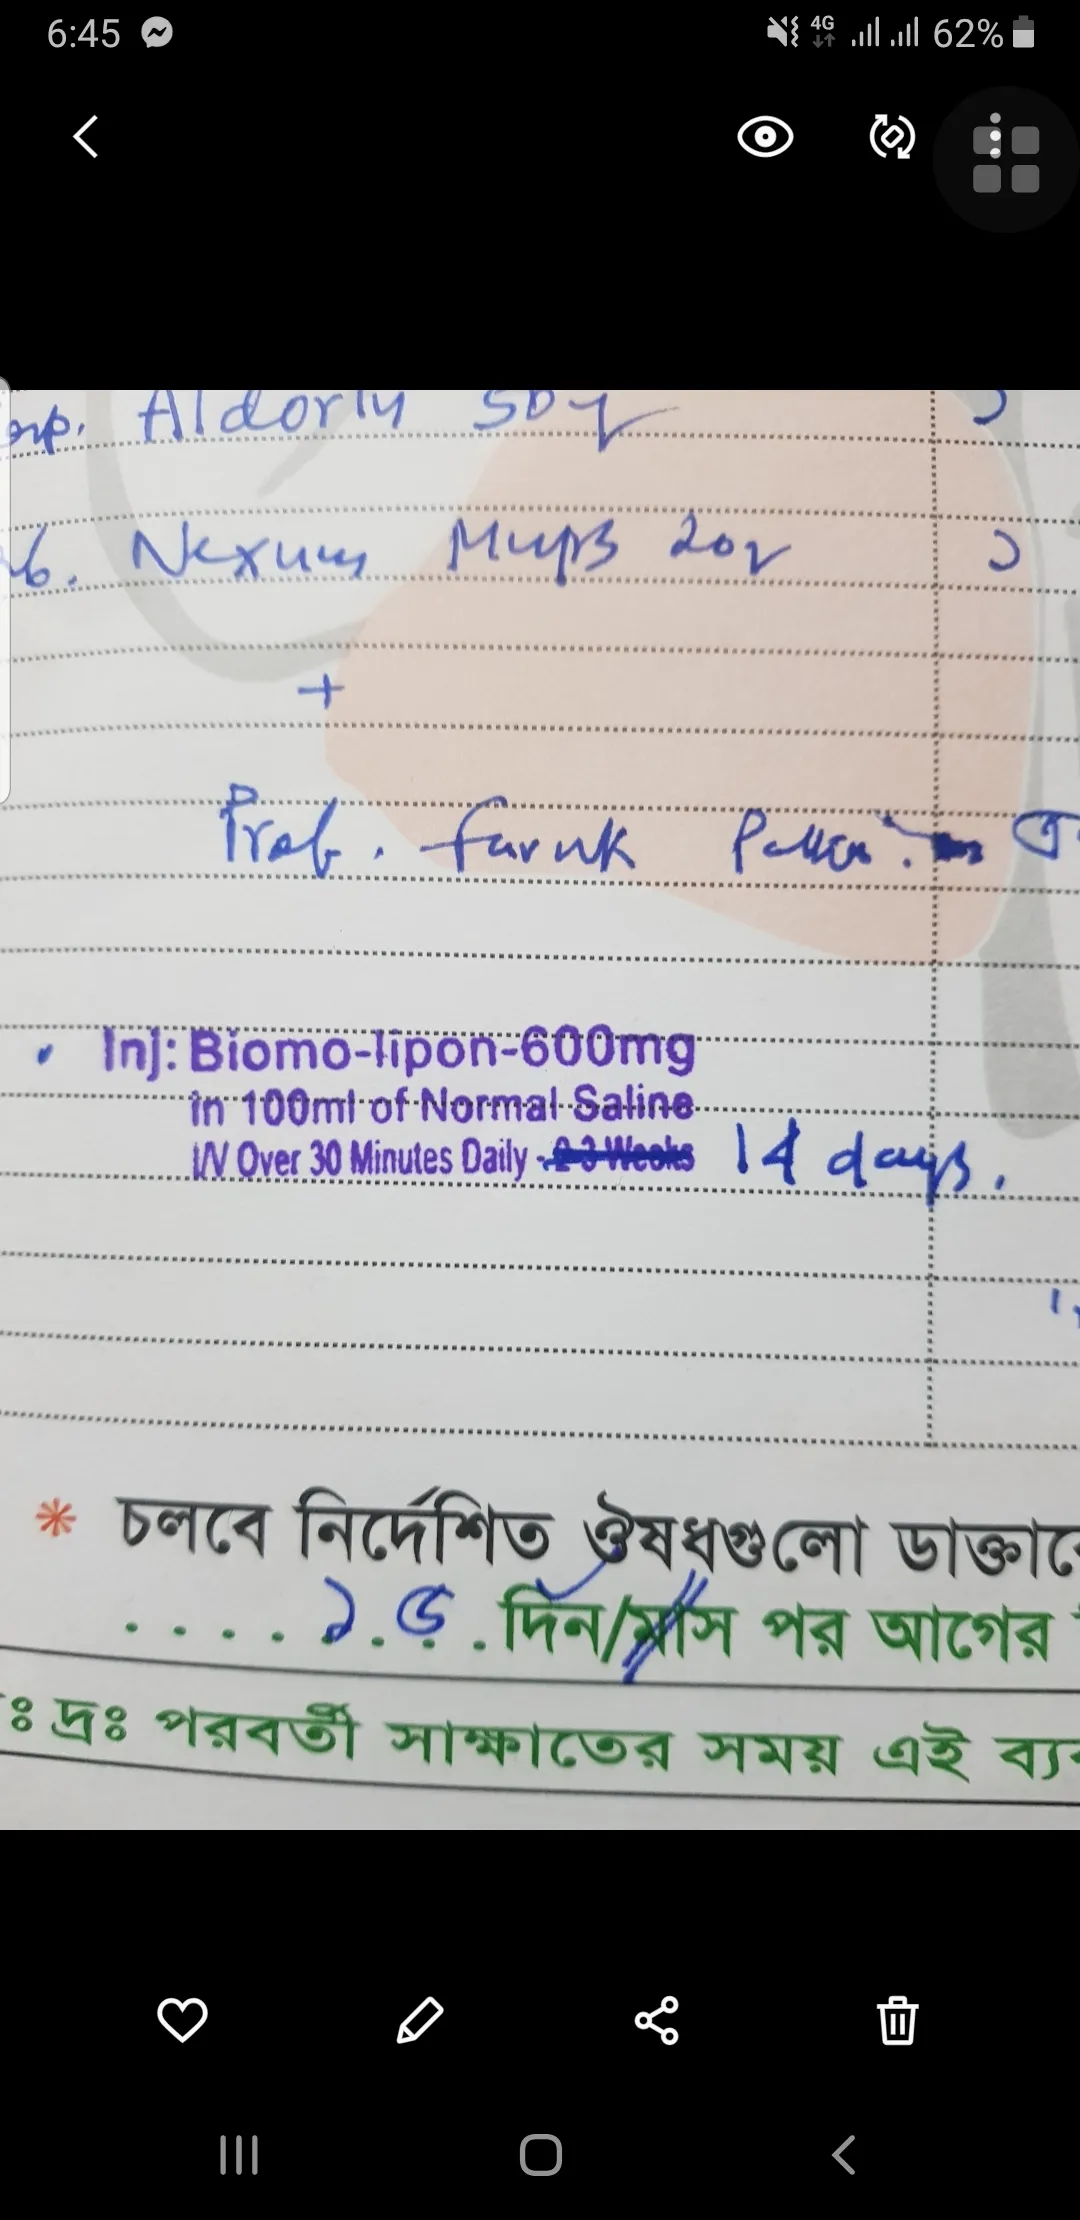 6:45 4G 62%
Aldorin 50
Nexum Mups 20 ১
+
Prof. Faruk
Inj: Biomo-lipon-600mg
in 100ml of Normal Saline
I/V Over 30 Minutes Daily - 2-3 Weeks 14 days.
* চলবে নির্দেশিত ঔষধগুলো
..... ১৫ . দিন/মাস পর আগের
ঃ দ্রঃ পরবর্তী সাক্ষাতের সময় এই